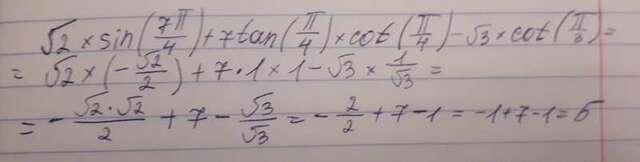 √2 × sin(7π/4) + 7tan(π/4) × cot(π/4) - √3 × cot(π/3) =
= √2 × (-√2/2) + 7 · 1 × 1 - √3 × 1/√3 =
= - √2·√2/2 + 7 - √3/√3 = - 2/2 + 7 - 1 = -1 + 7 - 1 = 5